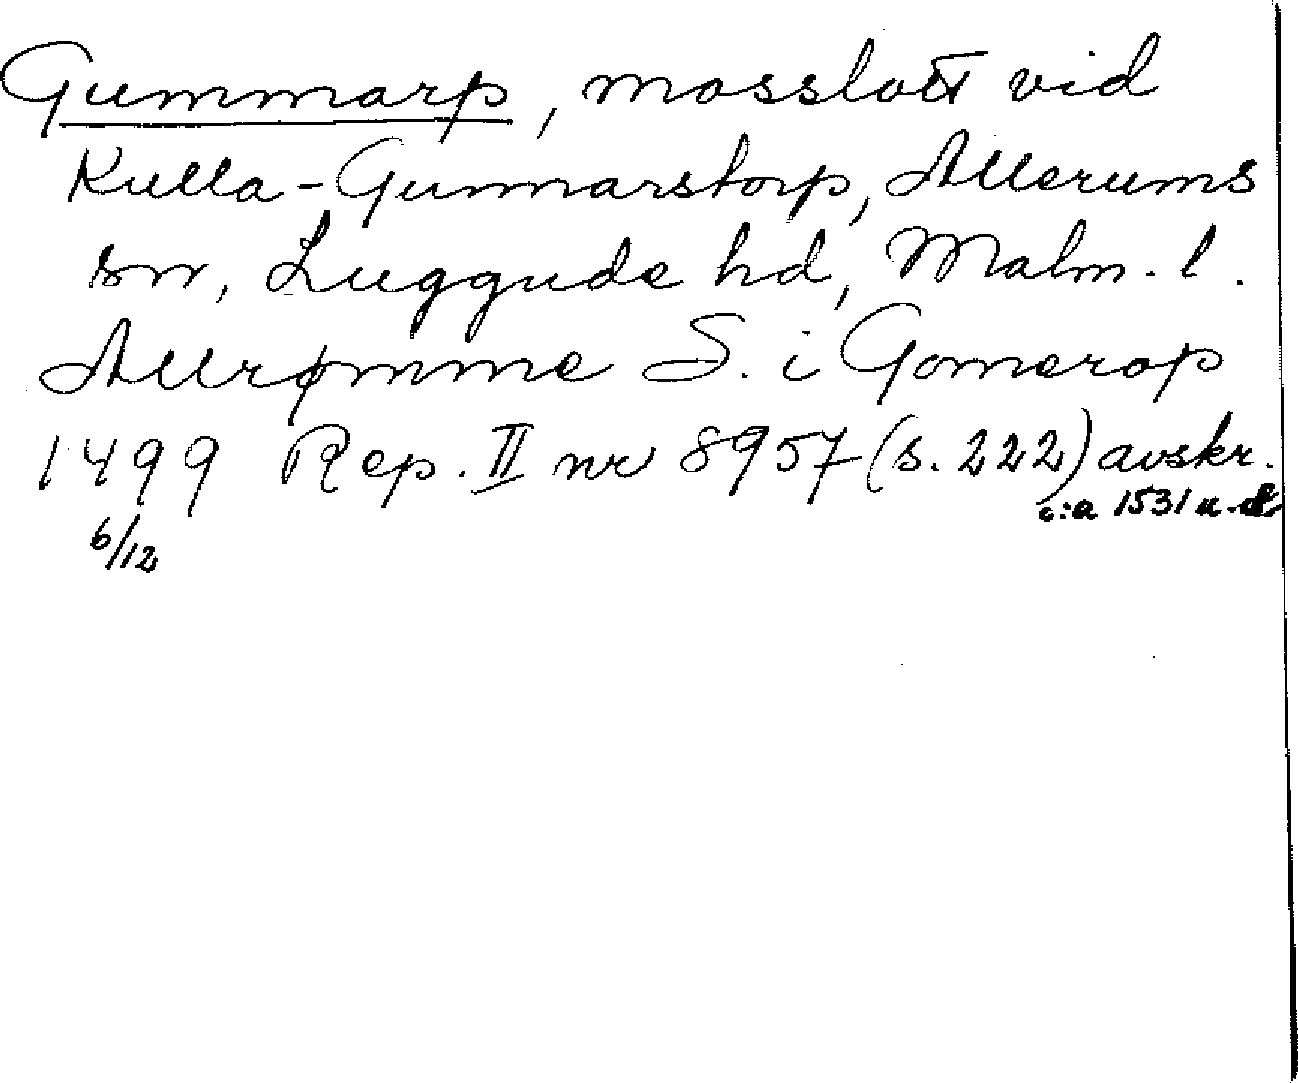 Gummarp, mosslott vid
Kulla-Gunnarstorp, Allerums
sn, Luggude hd, Malm. l.
Allrømme S. i Gomerop
1499 Rep. II nr 8957 (s. 222) avskr.
c:a 1531 u. d.
6/12